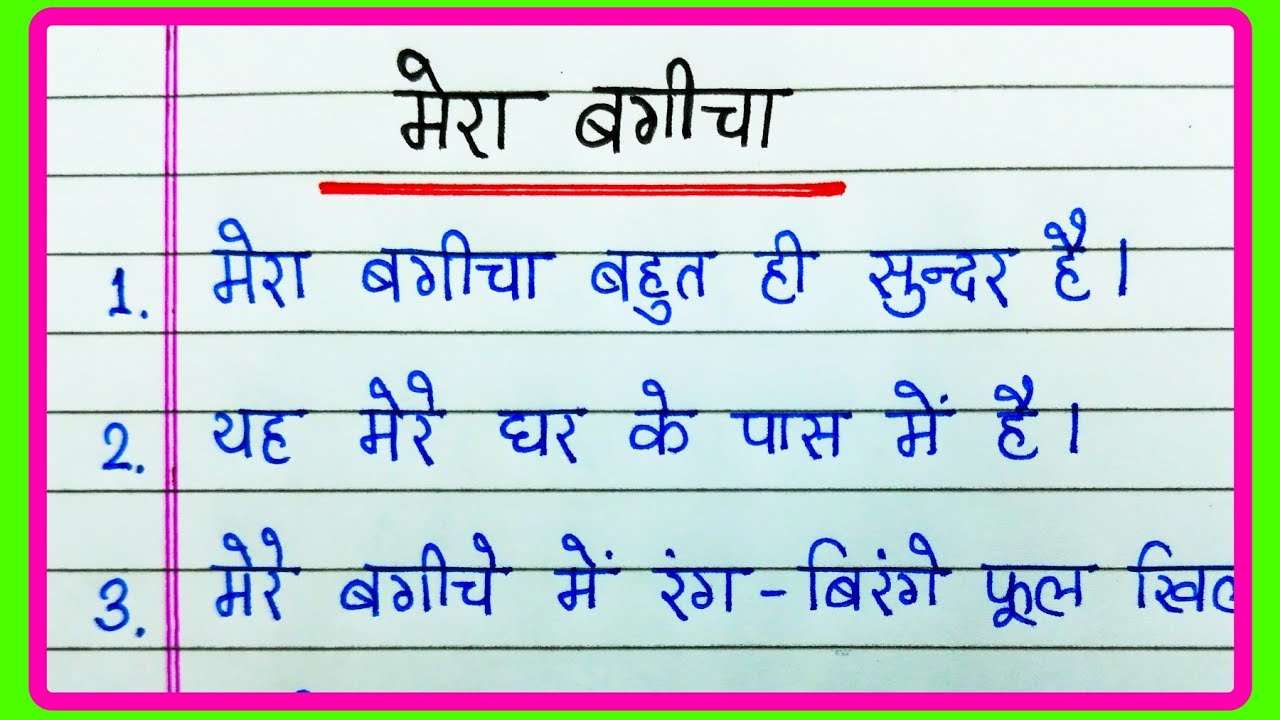 मेरा बगीचा
1. मेरा बगीचा बहुत ही सुन्दर है।
2. यह मेरे घर के पास में है।
3. मेरे बगीचे में रंग-बिरंगे फूल